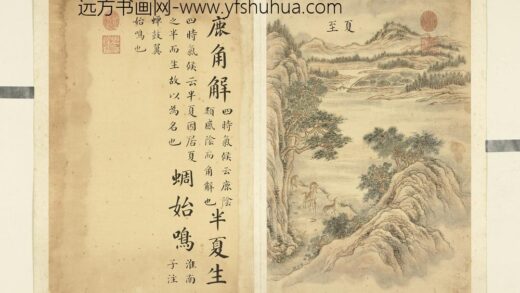 远方书画网-www.yfshuhua.com
夏至
鹿角解
四時氣候云鹿陰
類感陰而角解也
半夏生
四時氣候云半夏因居夏
之半而生故以為名也
蜩始鳴
淮南
子注
蟬鼓翼
始鳴也